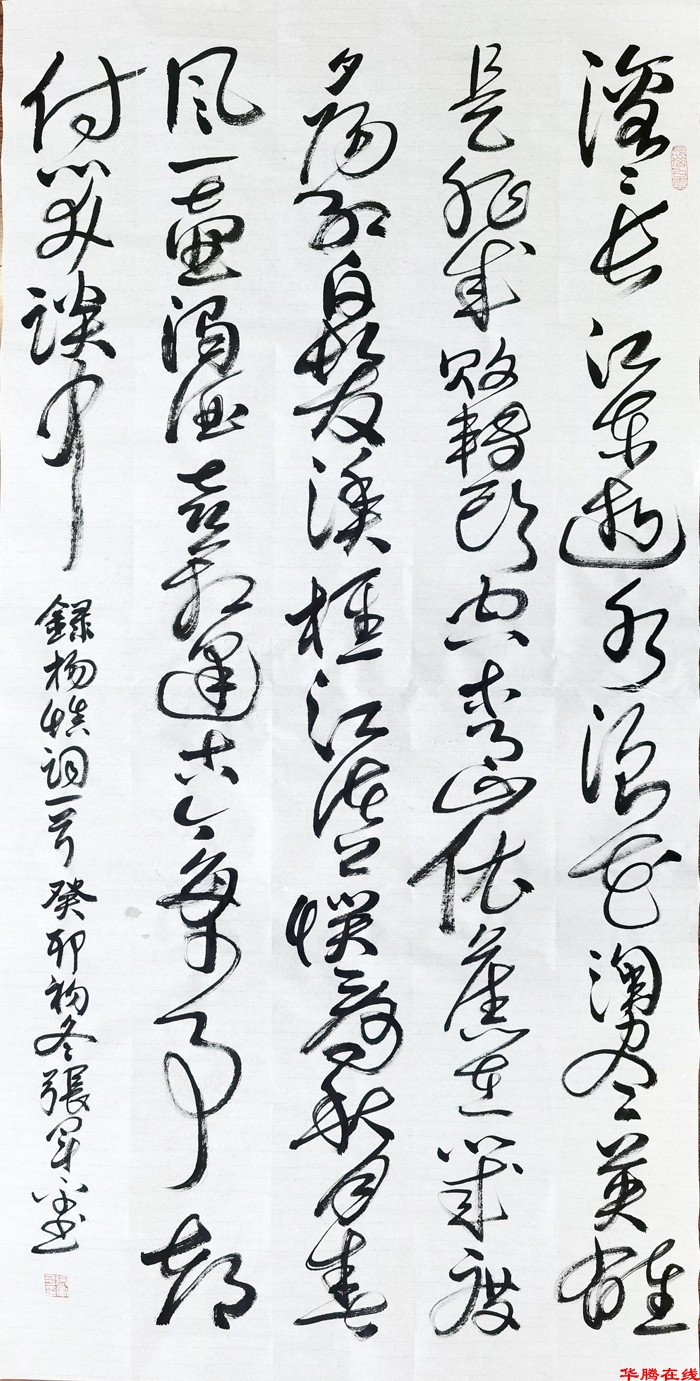 滚滚长江东逝水浪花淘尽英雄
是非成败转头空青山依旧在几度
夕阳红白髮渔樵江渚上惯看秋月春
风一壶浊酒喜相逢古今多少事都
付笑谈中
錄杨慎词一首 癸卯初冬張军
华腾在线